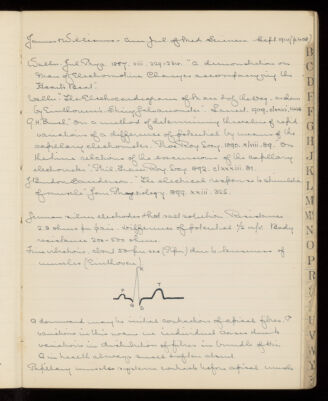 James & Williams - Am Jnl of Med Science Sept 1910 p408
Waller. Jnl Phys. 1887. viii. 229-234. "A demonstration on
Man of Electromotive Changes accompanying the
Heart's Beat."
Waller. "The Electrocardiogram of Man & of the Dog. as shown
by Einthoven's String Galvanometer." Lancet. 1909.
G.H. Burch. On a method of determining the value of rapid
variations of a difference of potential by means of the
capillary electrometer. Proc Roy Soc. 1890. xlviii. 89. On
the time relations of the excursions of the capillary
electrometer. Phil. Trans Roy Soc 1892. clxxxiii. 81.
J Burdon Sanderson. "The electrical response to stimulus
of muscle." Jour Physiology 1895. xxiii. 325.
German silver electrodes & hot salt solution. Resistance
ohms per pair. Differences of potential m/v. Body
resistance ohms.
Fine vibrations, about 50 per sec (Piper) due to tenseness of
muscles (Einthoven)
P R T
Q S
A downward may be initial contraction of apical fibres. ?
variations in this wave in individual cases due to
variations in distribution of fibres in bundle of His.
Q in health always small & often absent.
Papillary muscles systems contract before apical muscle
B
C
D
E
F
G
H
I
J
K
L
M
N
O
P
R
S
T
U
V
W
Y